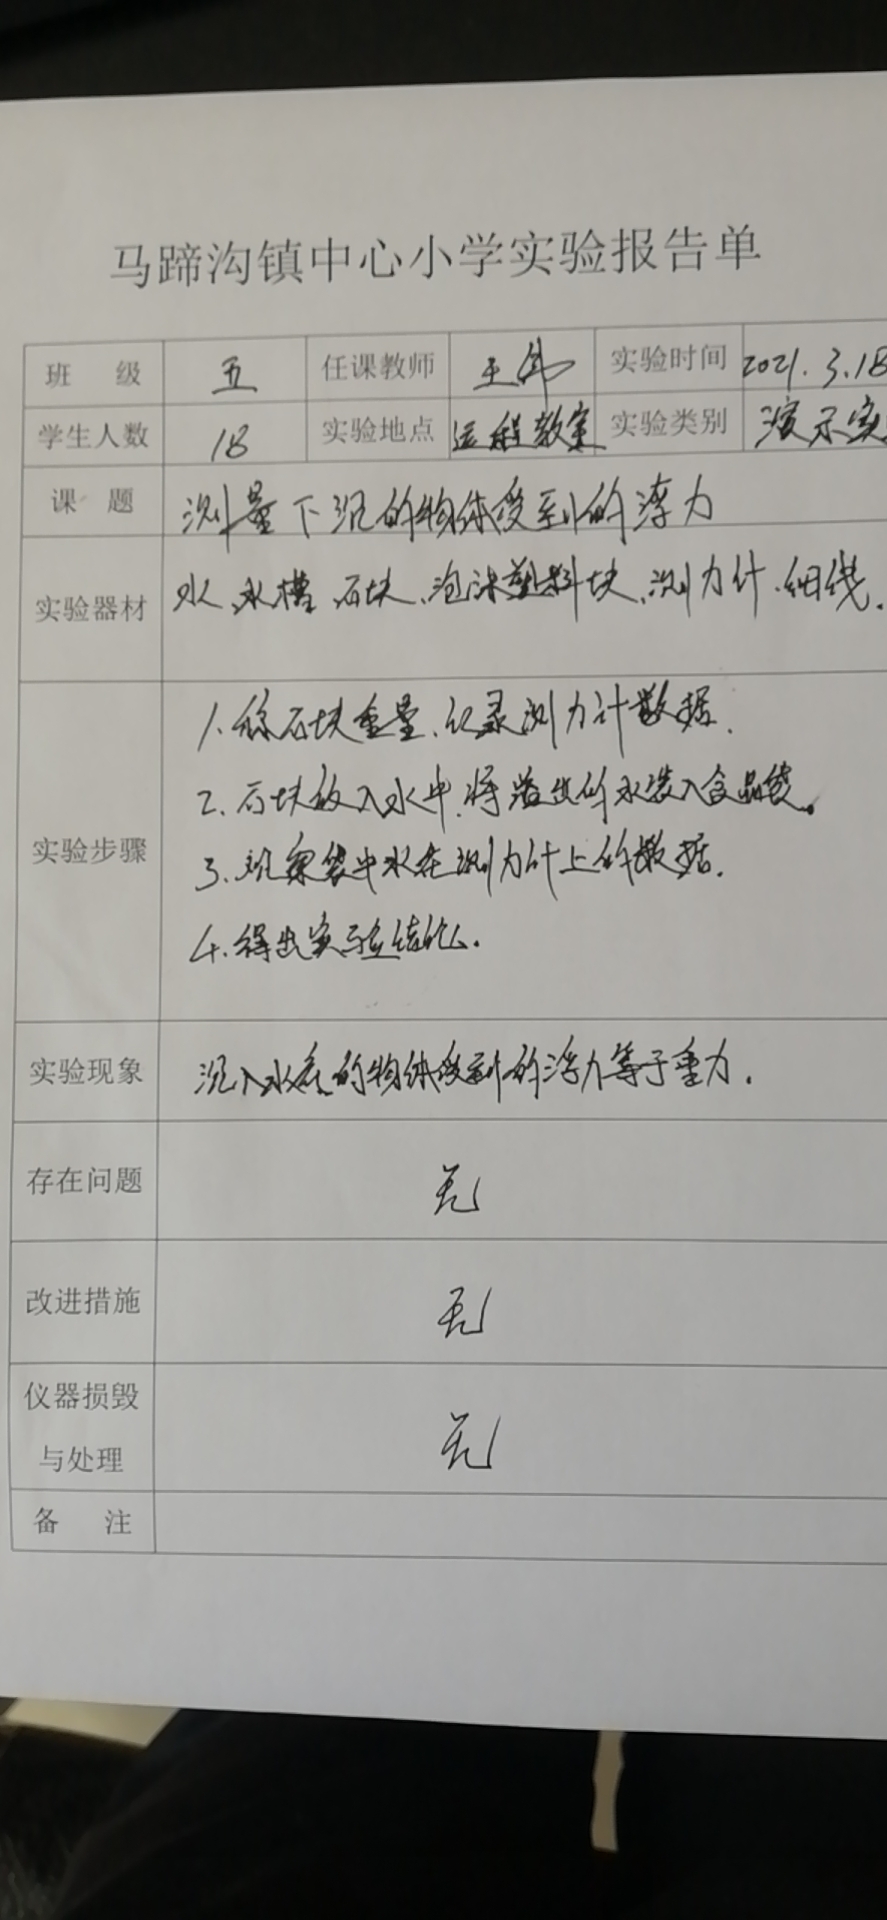 马蹄沟镇中心小学实验报告单
班 级 五 任课教师 王伟 实验时间 2021.3.18
学生人数 18 实验地点 远程教室 实验类别 演示实
课 题 测量下沉的物体受到的浮力
实验器材 水、水槽、石块、泡沫塑料块、测力计、细线.
1. 称石块重量、记录测力计数据.
2. 石块放入水中,将溢出的水装入食品袋。
实验步骤
3. 观察袋中水在测力计上的数据.
4. 得出实验结论.
实验现象 沉入水底的物体受到的浮力等于重力.
存在问题 无
改进措施 无
仪器损毁
与处理 无
备 注